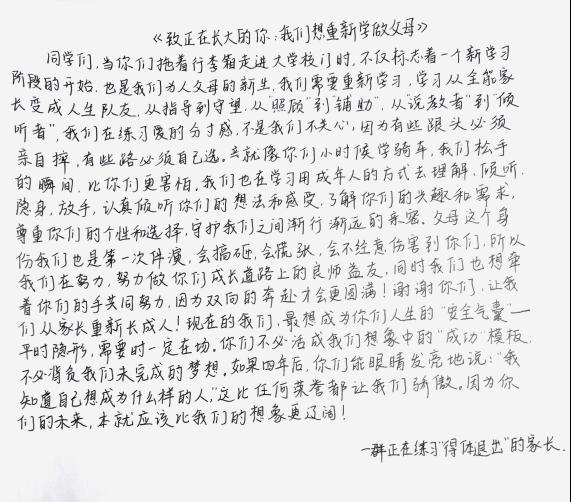 《致正在长大的你：我们想重新学做父母》
同学们，当你们拖着行李箱走进大学校门时，不仅标志着一个新学习
阶段的开始，也是我们为人父母的新生，我们需要重新学习，学习从全能家
长变成人生队友，从指导到守望，从"照顾"到"辅助"，从"说教者"到"倾
听者"，我们在练习爱的分寸感，不是我们不关心，因为有些跟头必须
亲自摔，有些路必须自己选。就像你们小时候学骑车，我们松手
的瞬间，比你们更害怕，我们也在学习用成年人的方式去理解、倾听、
隐身，放手，认真倾听你们的想法和感受，了解你们的兴趣和需求，
尊重你们的个性和选择，守护我们之间渐行渐远的亲密。父母这个身
份我们也是第一次传演，会搞砸，会慌张，会不经意伤害到你们，所以
我们在努力，努力做你们成长道路上的良师益友，同时我们也想牵
着你们的手共同努力，因为双向的奔赴才会更圆满！谢谢你们，让我
们从家长重新长成人！现在的我们，最想成为你们人生的"安全气囊"—
平时隐形，需要时一定在场。你们不必活成我们想象中的"成功"模板，
不必背负我们未完成的梦想。如果四年后，你们能眼睛发亮地说："我
知道自己想成为什么样的人，"这比任何荣誉都让我们骄傲。因为你
们的未来，本就应该比我们的想象更辽阔！
一群正在练习"得体退出"的家长.